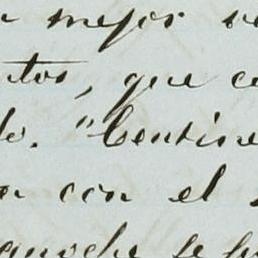 mejor
tos, que
do. "Centine
con el
anoche se